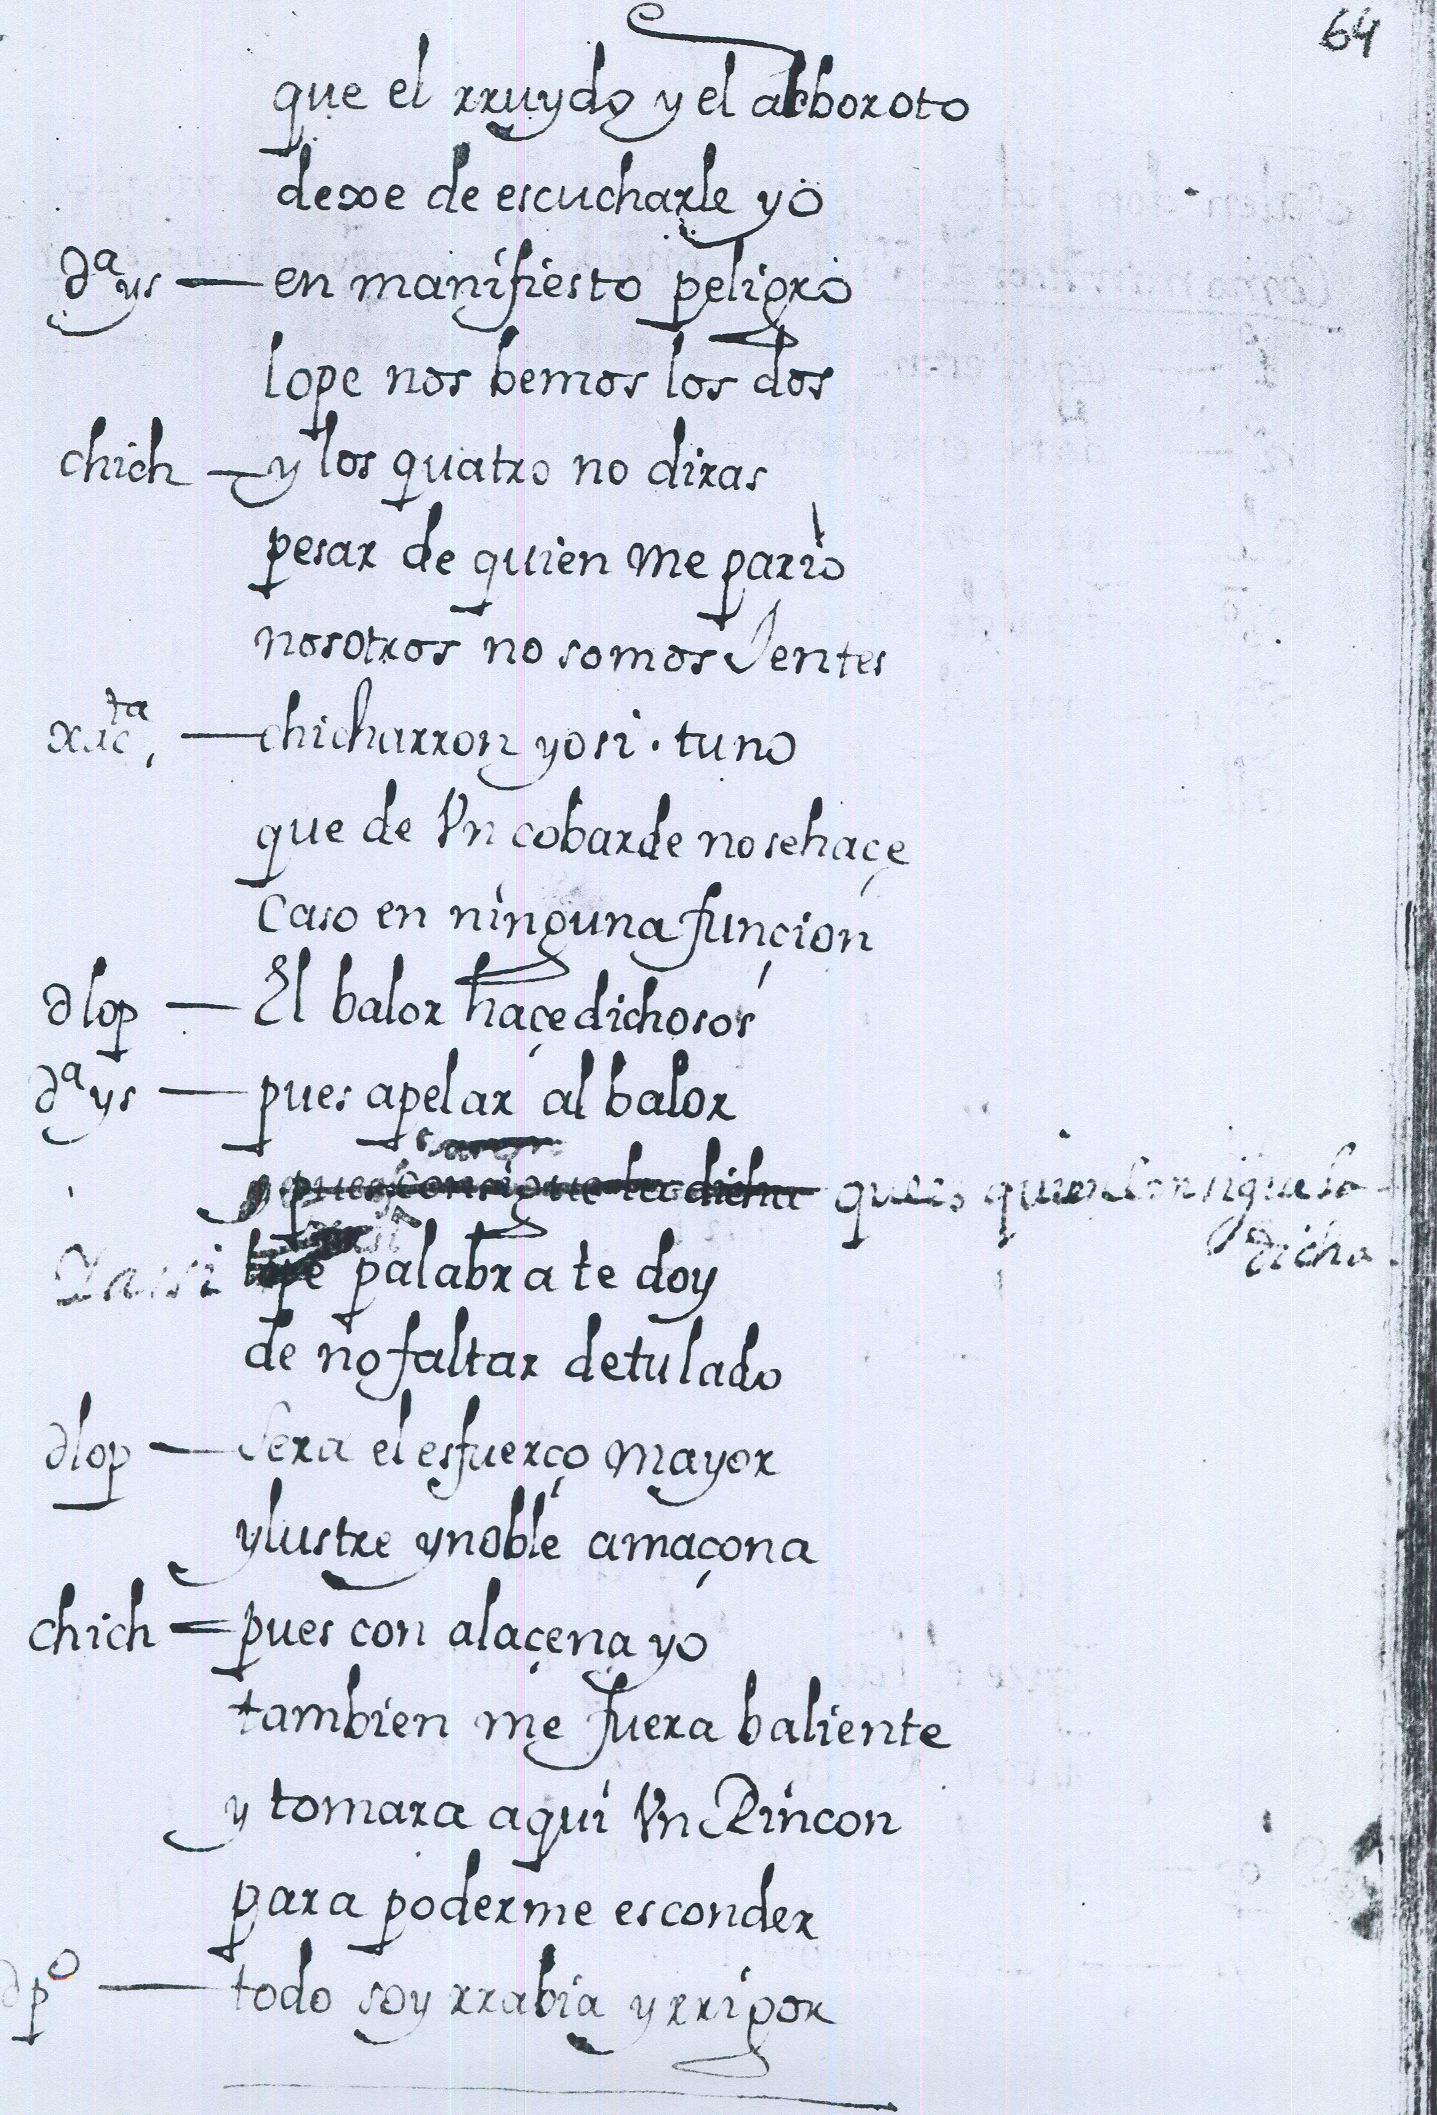 64
que el rruydo y el alboroto
dexe de escucharle yo
dª ys — en manifiesto peligro
lope nos bemos los dos
chich — y los quatro no diras
pesar de quien me pario
nosotros no somos Jentes
xacta — chicharron yo si · tu no
que de Vn cobarde no se haçe
caso en ninguna funçion
dlop — El balor haçe dichosos
dª ys — pues apelar al balor
y pues consigue la dicha ques quien Consigue la
dicha
Yassi lope palabra te doy
de no faltar de tu lado
dlop — Sera el esfuerço mayor
ylustre y noble amaçona
chich = pues con alaçena yo
tambien me fuera baliente
y tomara aqui Vn Rincon
para poderme esconder
dpº — todo soy rrabia y rrigor